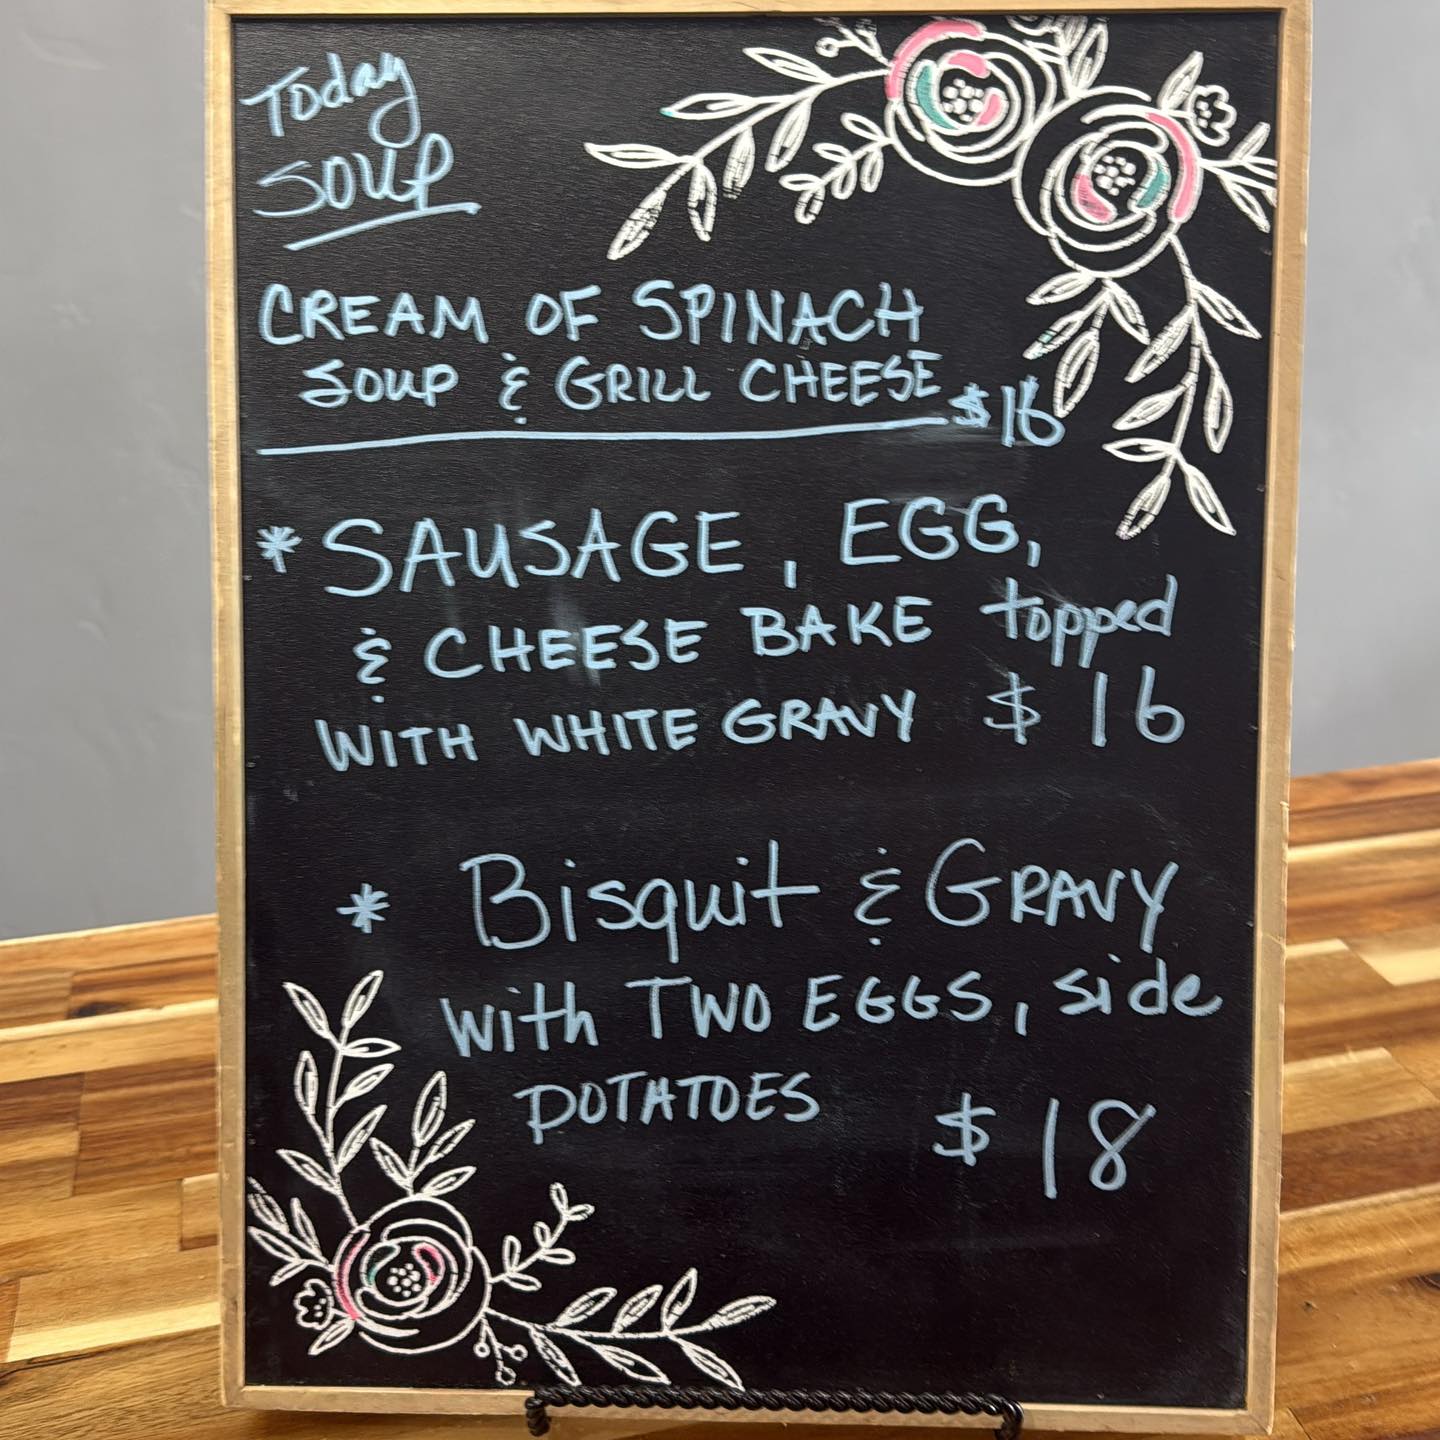 Today
SOUP
CREAM OF SPINACH
SOUP & GRILL CHEESE $16
* SAUSAGE, EGG,
& CHEESE BAKE topped
WITH WHITE GRAVY $16
* Bisquit & GRAVY
with TWO EGGS, side
POTATOES $18